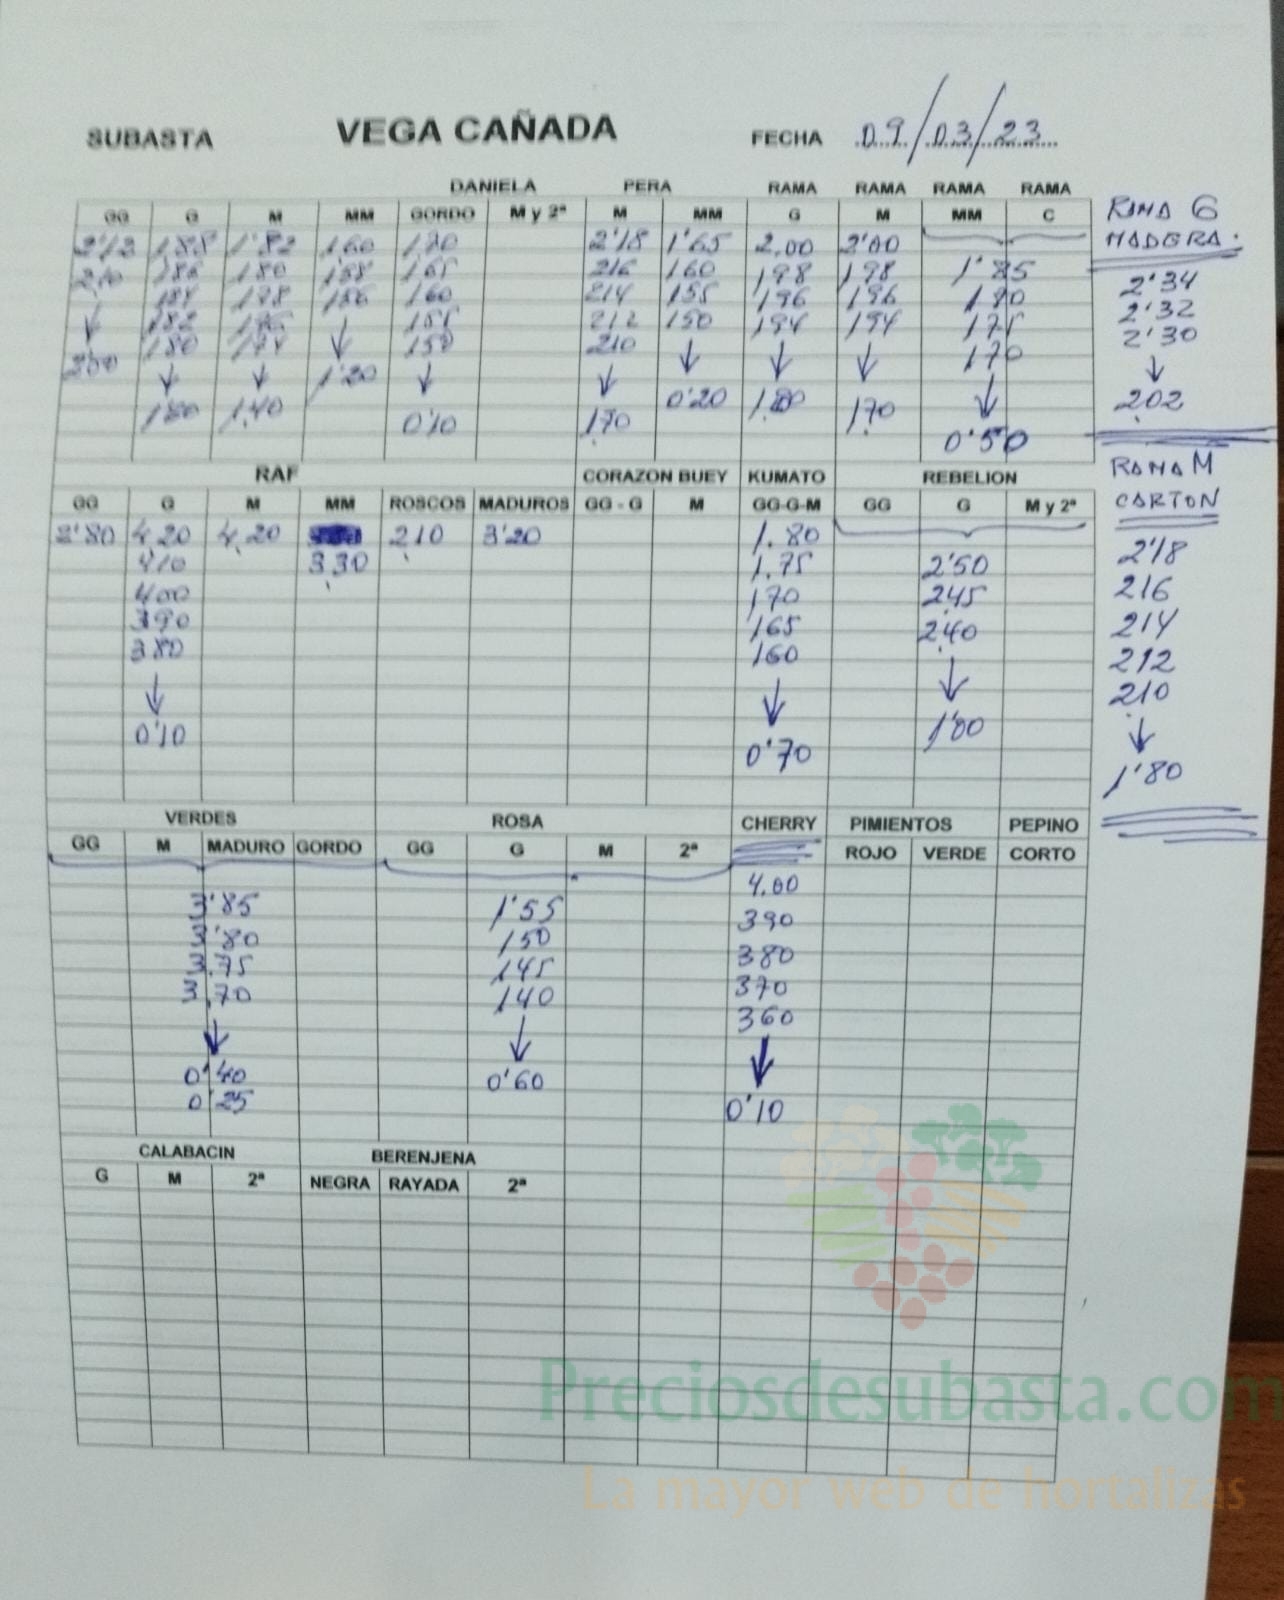 SUBASTA VEGA CAÑADA FECHA 09/03/23
DANIELA PERA RAMA RAMA RAMA RAMA
GG G M MM GORDO M y 2ª M MM G M MM C
RAMA G
MADERA.
2'12 1.88 1'82 1.60 1.70 2'18 1'65 2.00 2'00
210 186 180 158 165 216 160 198 198 1'85
184 178 156 160 214 155 196 196 180
182 176 155 212 150 194 194 175
200 180 174 150 210 170
1'20
1.80 1.40 0'10 170 0'20 1.80 170
0'50
2'34
2'32
2'30
202
RAF CORAZON BUEY KUMATO REBELION
GG G M MM ROSCOS MADUROS GG - G M GG-G-M GG G M y 2ª
RAMA M
CARTON
4.20 4.20 210 3'20 1.80
410 3.30 1.75 2'50
400 170 245
390 165 240
380 160
0'10 0'70 1'00
2'18
216
214
212
210
1'80
VERDES ROSA CHERRY PIMIENTOS PEPINO
GG M MADURO GORDO GG G M 2ª ROJO VERDE CORTO
4.00
3'85 1'55 390
3'80 150 380
3.75 145 370
3.70 140 360
0'40 0'60
0'25 0'10
CALABACIN BERENJENA
G M 2ª NEGRA RAYADA 2ª
Preciosdesubasta.com
La mayor web de hortalizas